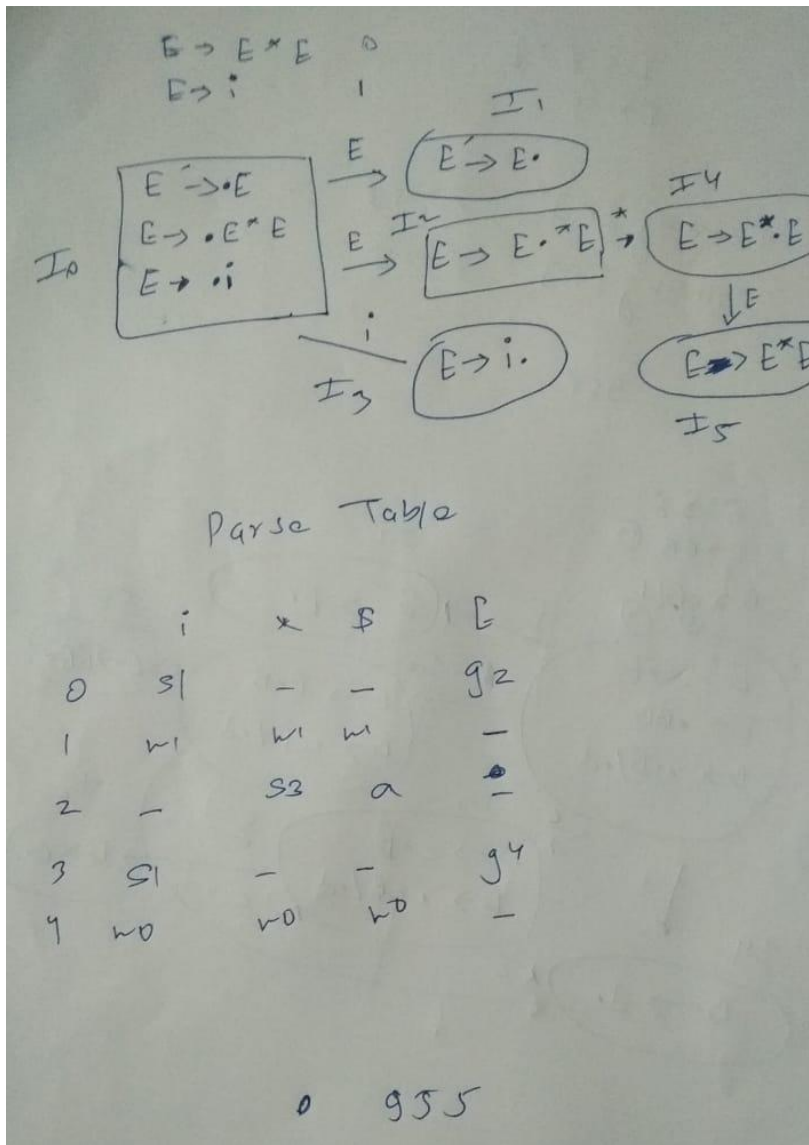 E → E * E 0
E → i 1
I1
E' → •E E E' → E•
I0 E → •E * E E I2 E → E• * E * I4 E → E * •E
E → •i i E
I3 E → i• E → E * E
I5
Parse Table
i * $ E
0 s1 – – g2
1 r1 r1 r1 –
2 – s3 a –
3 s1 – – g4
4 r0 r0 r0 –